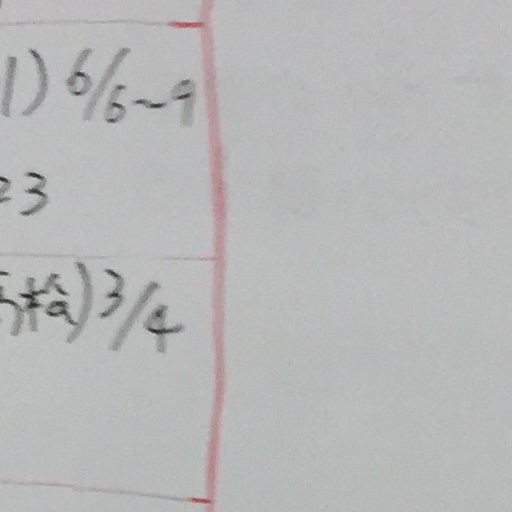 1) 6/6~9
23
檢) 3/4